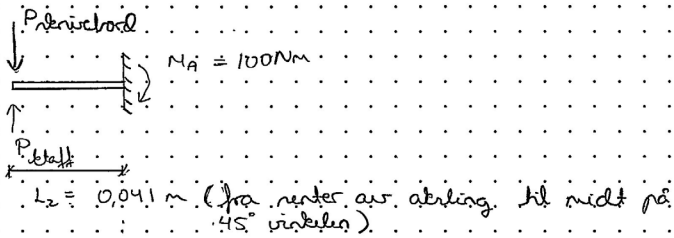 P skrivebord
M_A = 100Nm
P_kraft
L₂ = 0,041 m (fra senter av aksling til midt på
45° vinkelen)